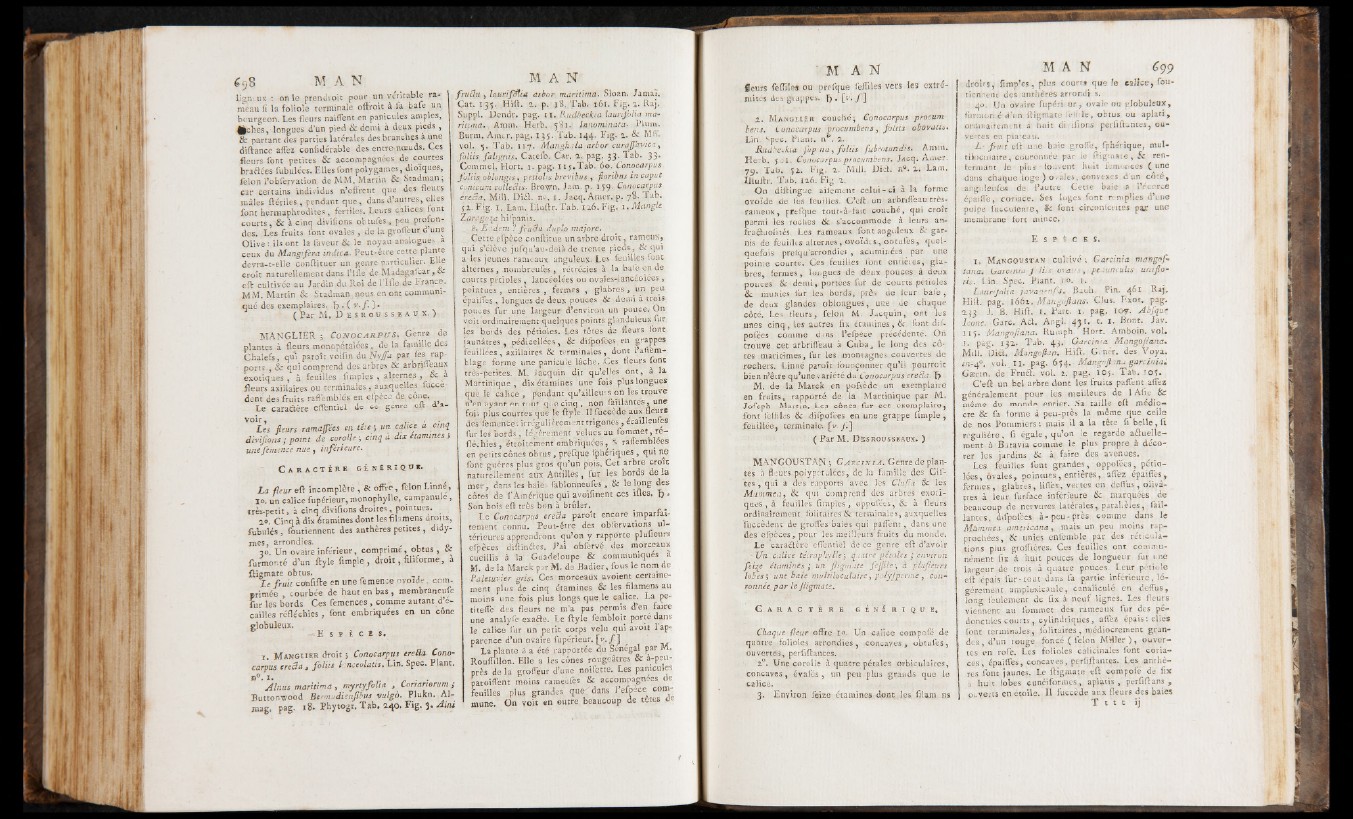 698 M A N
ligneux : on le prendroit pour un véritable ra-
meau si la foliole terminale offroit à sa base un
bourgeon. Les fleurs naissent en panicules amples,
lâches, longues d'un pied & demi à deux pieds,
& partant des parties latérales des branches à une
distance assez considérable des entre-nœuds. Ces
fleurs sont petites & accompagnées de courtes
bractées subulées. Elles sont polygames, dioïques,
selon l'observation de MM. Martin & Stadman;
car certains individus n'offrent que des fleurs
mâles stériles, pendant que, dans d'autres, elles
sont hermaphrodites, fertiles. Leurs calices sont
courts, & à cinq divisions obtuses, peu profon-
des. Les fruits sont ovales, de la grosseur d'une
Olive : ils ont la saveur & le noyau analogues à
ceux du Mangifera indica. Peut-être cette plante
devra-t-elle constituer un genre particulier. Elle
croît naturellement dans l'Isle de Madagascar, &
est cultivée au Jardin du Roi de l'Isle de France.
MM. Martin & Stadman nous en ont communi-
qué des exemplaires. ♄. ( v. s. ).
( Par M. DESROUSSEAUX. )
MANGLIER ; CONOCARPUS. Genre de
plantes à fleurs monopétalées, de la famille des
Chalefs, qui paroît voisin du Nyssa par ses rap-
ports, & qui comprend des arbres & arbrisseaux
exotiques, à feuilles simples, alternes, & à
fleurs axillaires ou terminales, auxquelles succè-
dent des fruits rassemblés en espèce de cône.
Le caractère essentiel de ce genre est d'a-
voir,
Les fleurs ramassées en tête ; un calice à cinq
divisions ; point de corolle ; cinq à dix étamines ;
une semence nue, inférieure.
CARACTÈRE GÉNÉRIQUE.
La fleur est incomplète, & offre, selon Linné,
1°. un calice supérieur, monophylle, campanulé,
très-petit, à cinq divisions droites, pointues.
2°. Cinq à dix étamines dont les filamens droits,
subulés, soutiennent des anthères petites, didy-
mes, arrondies.
3°. Un ovaire inférieur, comprimé, obtus, &
surmonté d'un style simple, droit, filiforme, à
stigmate obtus.
Le fruit consiste en une semence ovoïde, com-
primée, courbée de haut en bas, membraneuse
sur les bords. Ces semences, comme autant d'é-
cailles réfléchies, sont embriquées en un cône
globuleux.
ESPÈCES.
1. MANGLIER droit ; Conocarpus erecta. Cono-
carpus erecta, foliis lanceolatis. Lin. Spec. Plant.
n°. 1.
Alnus maritima, myrtifolia, Coriariorum ;
Buttonwood Bermudensibus vulgò. Plukn. Al-
mag. pag. 18. Phytogr. Tab. 240. Fig. 3. Alni
M A N
fructu, laurifolia arbor maritima. Sloan. Jamaï.
Cat. 135. Hist. 2. p. 18. Tab. 161. Fig. 2. Raj.
Suppl. Dendr. pag. 11. Rudbeckia laurifolia ma-
ritima. Amm. Herb. 581. Innominata. Plum.
Burm. Amer. pag. 135. Tab. 144. Fig. 2. & Mss.
vol. 5. Tab. 117. Manghala arbor curassavica,
foliis salignis. Catesb. Car. 2. pag. 33. Tab. 33.
Commel. Hort. 1. pag. 115. Tab. 60. Conocarpus
foliis oblongis, petiolis brevibus, floribus in caput
conicum collectis. Brown. Jam. p. 159. Conocarpos
erecta. Mill. Dict. n°. 1. Jacq. Amer. p. 78. Tab.
52. Fig. 1. Lam. Illustr. Tab. 126. Fig. 1. Mangle
Zaragoza hispanis.
Cette espèce constitue un arbre droit, rameux,
qui s'élève jusqu'au-delà de trente pieds, & qui
a les jeunes rameaux anguleux. Les feuilles sont
alternes, nombreuses, rétrécies à la base en de
courts pétioles, lancéolées ou ovales-lancéolées,
pointues, entières, fermes, glabres, un peu
épaisses, longues de deux pouces & demi à trois
pouces sur une largeur d'environ un pouce. On
voit ordinairement quelques points glanduleux sur
les bords des pétioles. Les têtes de fleurs sont
jaunâtres, pédicellées, & disposées en grappes
feuillées, axillaires & terminales, dont l'assem-
blage forme une panicule lâche. Ces fleurs sont
très-petites. M. Jacquin dit qu'elles ont, à la
Martinique, dix étamines une fois plus longues
que le calice, pendant qu'ailleurs on les trouve
n'en ayant en tout que cinq, non saillantes, une
fois plus courtes que le style. Il succède aux fleurs
des semences irrégulièrement trigones, écailleuses
sur les bords, légèrement velues au sommet, ré-
fléchies, étroitement embriquées, & rassemblées
en petits cônes obtus, presque sphériques, qui ne
sont guères plus gros qu'un pois. Cet arbre croît
naturellement aux Antilles, sur les bords de la
mer, dans les baies sablonneuses, & le long des
côtes de l'Amérique qui avoisinent ces isles. ♄.
Son bois est très-bon à brûler.
Le Conocarpus erecta paroît encore imparfai-
tement connu. Peut-être des observations ul-
térieures apprendront qu'on y rapporte plusieurs
espèces distinctes. J'ai observé des morceaux
cueillis à la Guadeloupe & communiqués à
M. de la Marck par M. de Badier, sous le nom de
Paletuvier gris. Ces morceaux avoient certaine-
ment plus de cinq étamines & les filamens au
moins une fois plus longs que le calice. La pe-
titesse des fleurs ne m'a pas permis d'en faire
une analyse exacte. Le style sembloit porté dans
le calice sur un petit corps velu qui avoit l'ap-
parence d'un ovaire supérieur. [v. s.]
La plante a été rapportée du Sénégal par M.
Roussillon. Elle a les cônes rougeâtres & à-peu-
près de la grosseur d'une noisette. Les panicules
paroissent moins rameuses & accompagnées de
feuilles plus grandes que dans l'espèce com-
mune. On voit en outre beaucoup de têtes de
M A N
fleurs sessiles ou presque sessiles vers les extré-
mités des grappes. ♄. [v. s.]
2. MANGLIER couché ; Conocarpus procum-
bens. Conocarpus procumbens, foliis obovatis.
Lin. Spec. Plant. n°. 2.
Rudbeckia supina, foliis subrotundis. Amm.
Herb. 581. Conocarpus procumbens. Jacq. Amer.
79. Tab. 52. Fig. 2. Mill. Dict. n°. 2. Lam.
Illustr. Tab. 126. Fig. 2.
On distingue aisément celui-ci à la forme
ovoïde de ses feuilles. C'est un arbrisseau très-
rameux, presque tout-à-fait couché, qui croît
parmi les roches & s'accommode à leurs an-
fractuosités. Les rameaux sont anguleux & gar-
nis de feuilles alternes, ovoïdes, obtuses, quel-
quefois presqu'arrondies, acuminées par une
pointe courte. Ces feuilles sont entières, gla-
bres, fermes, longues de deux pouces à deux
pouces & demi, portées sur de courts pétioles
& munies sur les bords, près de leur base,
de deux glandes oblongues, une de chaque
côté. Les fleurs, selon M. Jacquin, ont les
unes cinq, les autres six étamines, & sont dis-
posées comme dans l'espèce précédente. On
trouve cet arbrisseau à Cuba, le long des cô-
tes maritimes, sur les montagnes couvertes de
rochers. Linné paroît soupçonner qu'il pourroit
bien n'être qu'une variété du Conocarpus erecta. ♄.
M. de la Marck en possède un exemplaire
en fruits, rapporté de la Martinique par M.
Joseph Martin. Les cônes sur cet exemplaire,
sont sessiles & disposés en une grappe simple,
feuillée, terminale. [v. s.]
( Par M. DESROUSSEAUX. )
MANGOUSTAN ; GARCINIA. Genre de plan-
tes à fleurs polypétalées, de la famille des Cis-
tes, qui a des rapports avec les Clusia & les
Mammea, & qui comprend des arbres exoti-
ques, à feuilles simples, opposées, & à fleurs
ordinairement solitaires & terminales, auxquelles
succèdent de grosses baies qui passent, dans une
des espèces, pour les meilleurs fruits du monde.
Le caractère essentiel de ce genre est d'avoir
Un calice tétraphylle ; quatre pétales ; environ
seize étamines ; un stigmate sessile, à plusieurs
lobes ; une baie multiloculaire, polysperme, cou-
ronnée par le stigmate.
CARACTERE GÉNÉRIQUE.
Chaque fleur offre 1°. Un calice composé de
quatre folioles arrondies, concaves, obtuses,
ouvertes, persistantes.
2°. Une corolle à quatre pétales orbiculaires,
concaves, évasés, un peu plus grands que le
calice.
3. Environ seize étamines dont les filamens
M A N 699
droits, simples, plus courts que le calice, sou-
tiennent des anthères arrondies.
4°. Un ovaire supérieur, ovale ou globuleux,
surmonté d'un stigmate sessile, obtus ou aplati,
ordinairement à huit divisions persistantes, ou-
vertes en plateau.
Le fruit est une baie grosse, sphérique, mul-
tiloculaire, couronnée par le stigmate, & ren-
fermant le plus souvent huit semences (une
dans chaque loge) ovales, convexes d'un côté,
anguleuses de l'autre. Cette baie a l'écorce
épaisse, coriace. Ses loges sont remplies d'une
pulpe succulente, & sont circonscrites par une
membrane fort mince.
ESPÈCES.
1. MANGOUSTAN cultivé ; Garcinia mangos-
tana. Garcinia foliis ovatis, pedunculis uniflo-
ris. Lin. Spec. Plant. n°. 1.
Laurifolia javanensis. Bauh. Pin. 461. Raj.
Hist. pag. 1662. Mangostans. Clus. Exot. pag.
233. J. B. Hist. 1. Part. 1. pag. 107. Absque
Icone. Garc. Act. Angl. 431. t. 1. Bont. Jav.
115. Mangostana. Rumph. Hort. Amboin. vol.
1. pag. 132. Tab. 43. Garcinia Mangostana.
Mill. Dict. Mangostan. Hist. Génér. des Voya.
in-4°. vol. 11. pag. 654. Mangostana garcinia.
Gærtn. de Fruct. vol. 2. pag. 105. Tab. 105.
C'est un bel arbre dont les fruits passent assez
généralement pour les meilleurs de l'Asie &
même du monde entier. Sa taille est médio-
cre & sa forme à peu-près la même que celle
de nos Pommiers ; mais il a la tête si belle, si
régulière, si égale, qu'on le regarde actuelle-
ment à Batavia comme le plus propre à déco-
rer les jardins & à faire des avenues.
Les feuilles sont grandes, opposées, pétio-
lées, ovales, pointues, entières, assez épaisses,
fermes, glabres, lisses, vertes en dessus, olivâ-
tres à leur surface inférieure & marquées de
beaucoup de nervures latérales, parallèles, sail-
lantes, disposées à-peu-près comme dans le
Mammea americana, mais un peu moins rap-
prochées, & unies ensemble par des réticula-
tions plus grossières. Ces feuilles ont commu-
nément six à huit pouces de longueur sur une
largeur de trois à quatre pouces. Leur pétiole
est épais sur-tout dans sa partie inférieure, lé-
gèrement amplexicaule, canaliculé en dessus,
long seulement de six à neuf lignes. Les fleurs
viennent au sommet des rameaux sur des pé-
doncules courts, cylindriques, assez épais : elles
sont terminales, solitaires, médiocrement gran-
des, d'un rouge foncé (selon Miller), ouver-
tes en rose. Les folioles calicinales sont coria-
ces, épaisses, concaves, persistantes. Les anthè-
res sont jaunes. Le stigmate est composé de six
à huit lobes cunéiformes, aplatis, persistans,
ouverts en étoile. Il succède aux fleurs des baies
T t t t ij